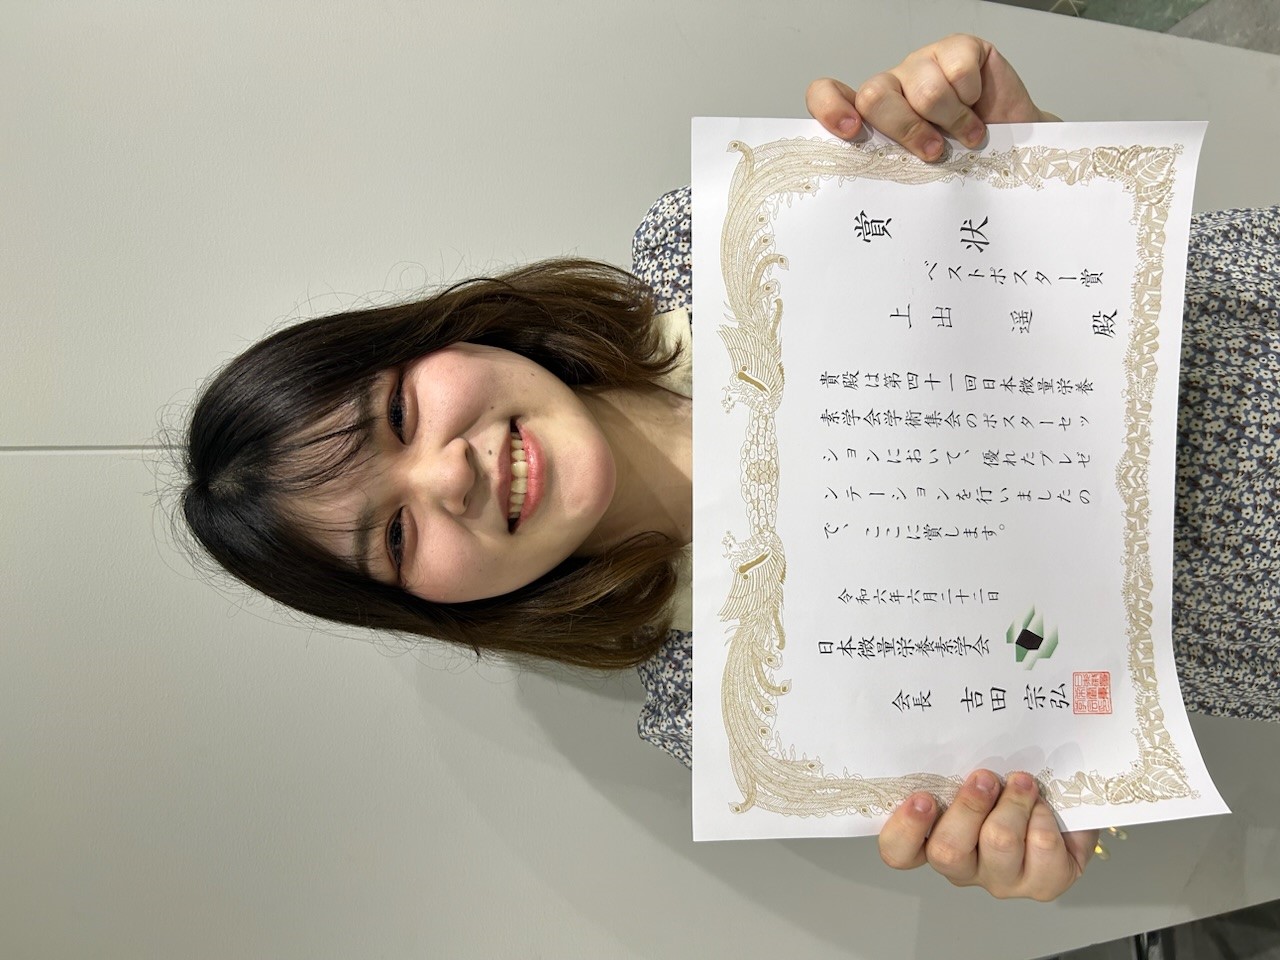 賞状
ベストポスター賞
上出 遥 殿
貴殿は第四十一回日本微量栄養
素学会学術集会のポスターセッ
ションにおいて、優れたプレゼ
ンテーションを行いましたの
で、ここに賞します。
令和六年六月二十二日
日本微量栄養素学会
会長 吉田 宗弘